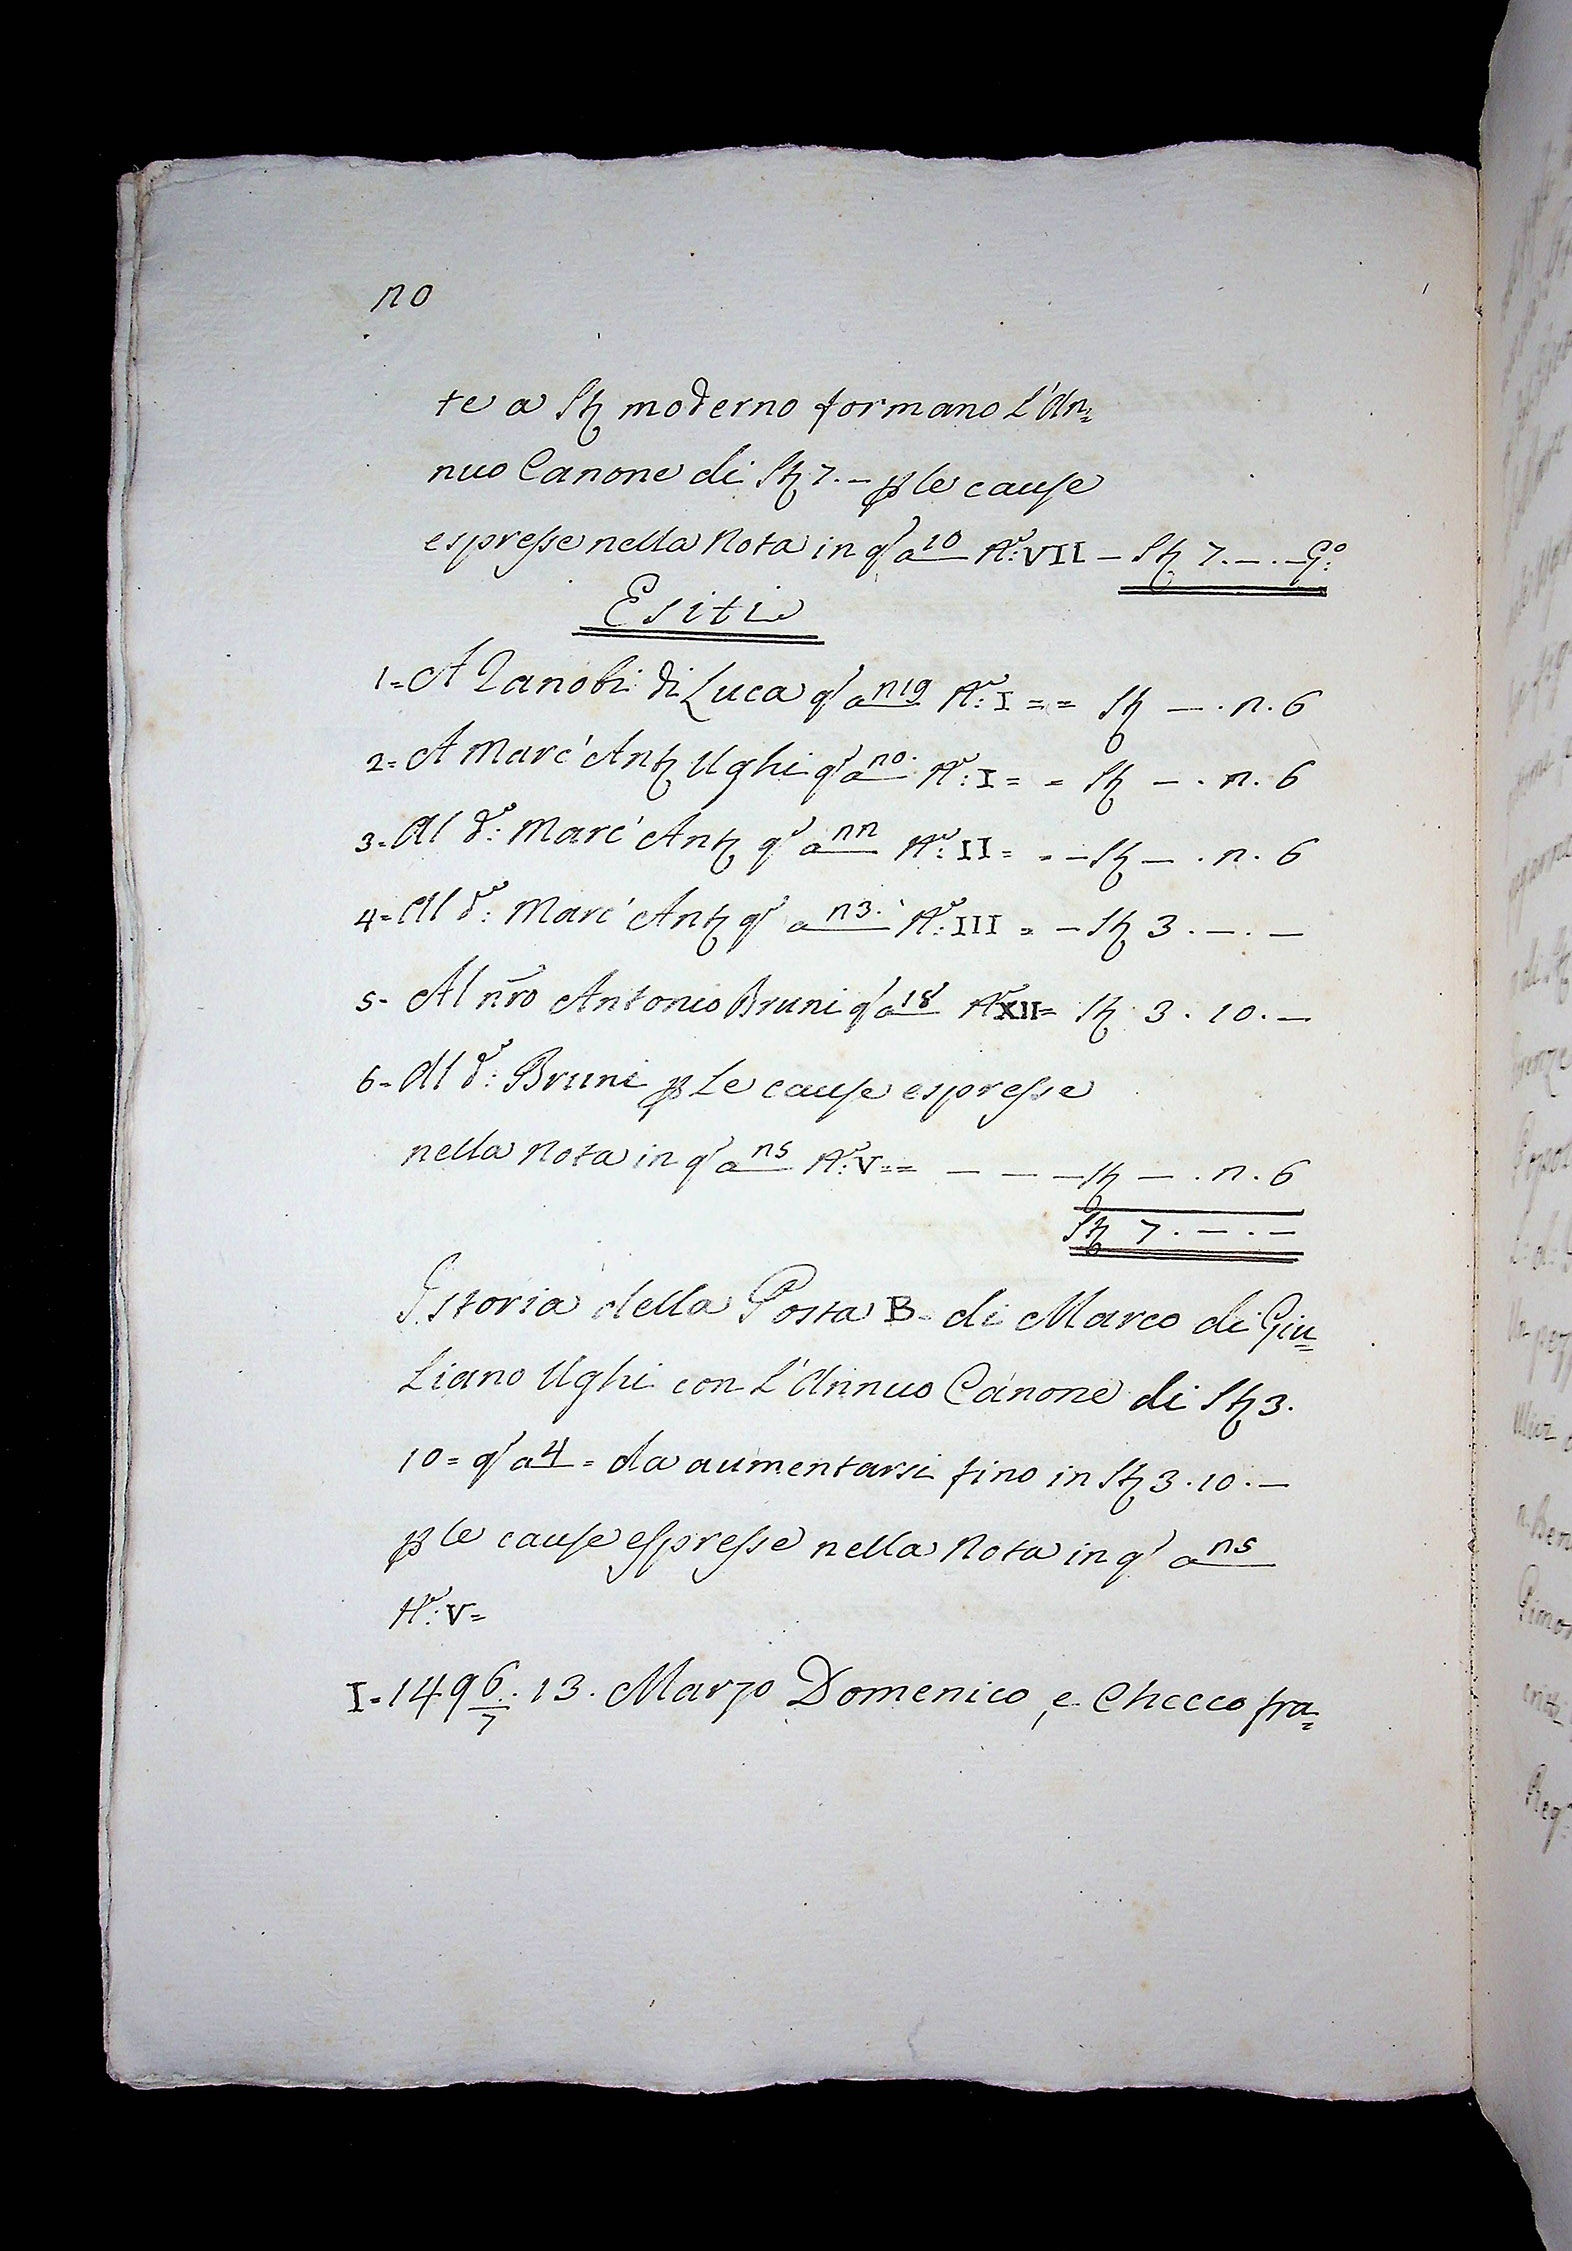 no
te a St; moderno formano L'An=
nuo Canone di St; 7. – p le cause
espresse nella Nota in q.a 10 N.o: VII – St; 7. – . – G.o:
Esiti
1= A Zanobi di Luca q.a n19 N.o: I = = St; – . n. 6
2= A Marc' Ant; Ughi q.a no. N.o: I = = St; – . n. 6
3= Al d.o: Marc' Ant; q.a nn N.o: II = = – St; – . n. 6
4= Al d.o: Marc' Ant; q.a n3. N.o: III = – St; 3 . – . –
5- Al nro Antonio Bruni q.a 18 N.o XII= St; 3 . 10 . –
6= Al d.o: Bruni p Le cause espresse
nella Nota in q.a ns N.o: V== – – – St; – . n. 6
St; 7 . – . –
Istoria della Posta B. di Marco di Giu=
Liano Ughi con L'Annuo Canone di St; 3.
10= q.a 4 = da aumentarsi fino in St; 3 . 10 . –
p le cause espresse nella Nota in q.a ns
N.o: V=
I= 1496/7. 13. Marzo Domenico, e Checco fra=